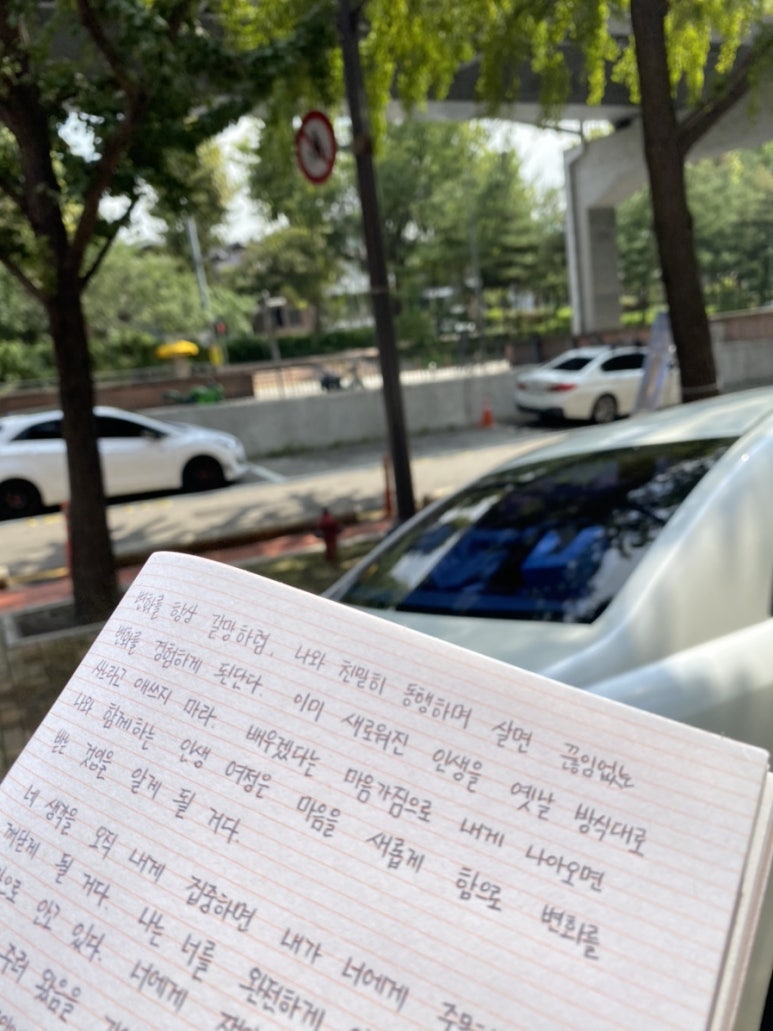 변화를 항상 갈망하렴. 나와 친밀히 동행하며 살면 끊임없는
변화를 경험하게 된단다. 이미 새로워진 인생을 옛날 방식대로
사느라고 애쓰지 마라. 배우겠다는 마음가짐으로 내게 나아오면
나와 함께하는 인생 여정은 마음을 새롭게 함으로 변화를
받는 것임을 알게 될 거다.
네 생각을 오직 내게 집중하면 내가 너에게
깨닫게 될 거다. 나는 너를 완전하게
알고 있다. 너에게
주려 왔음을